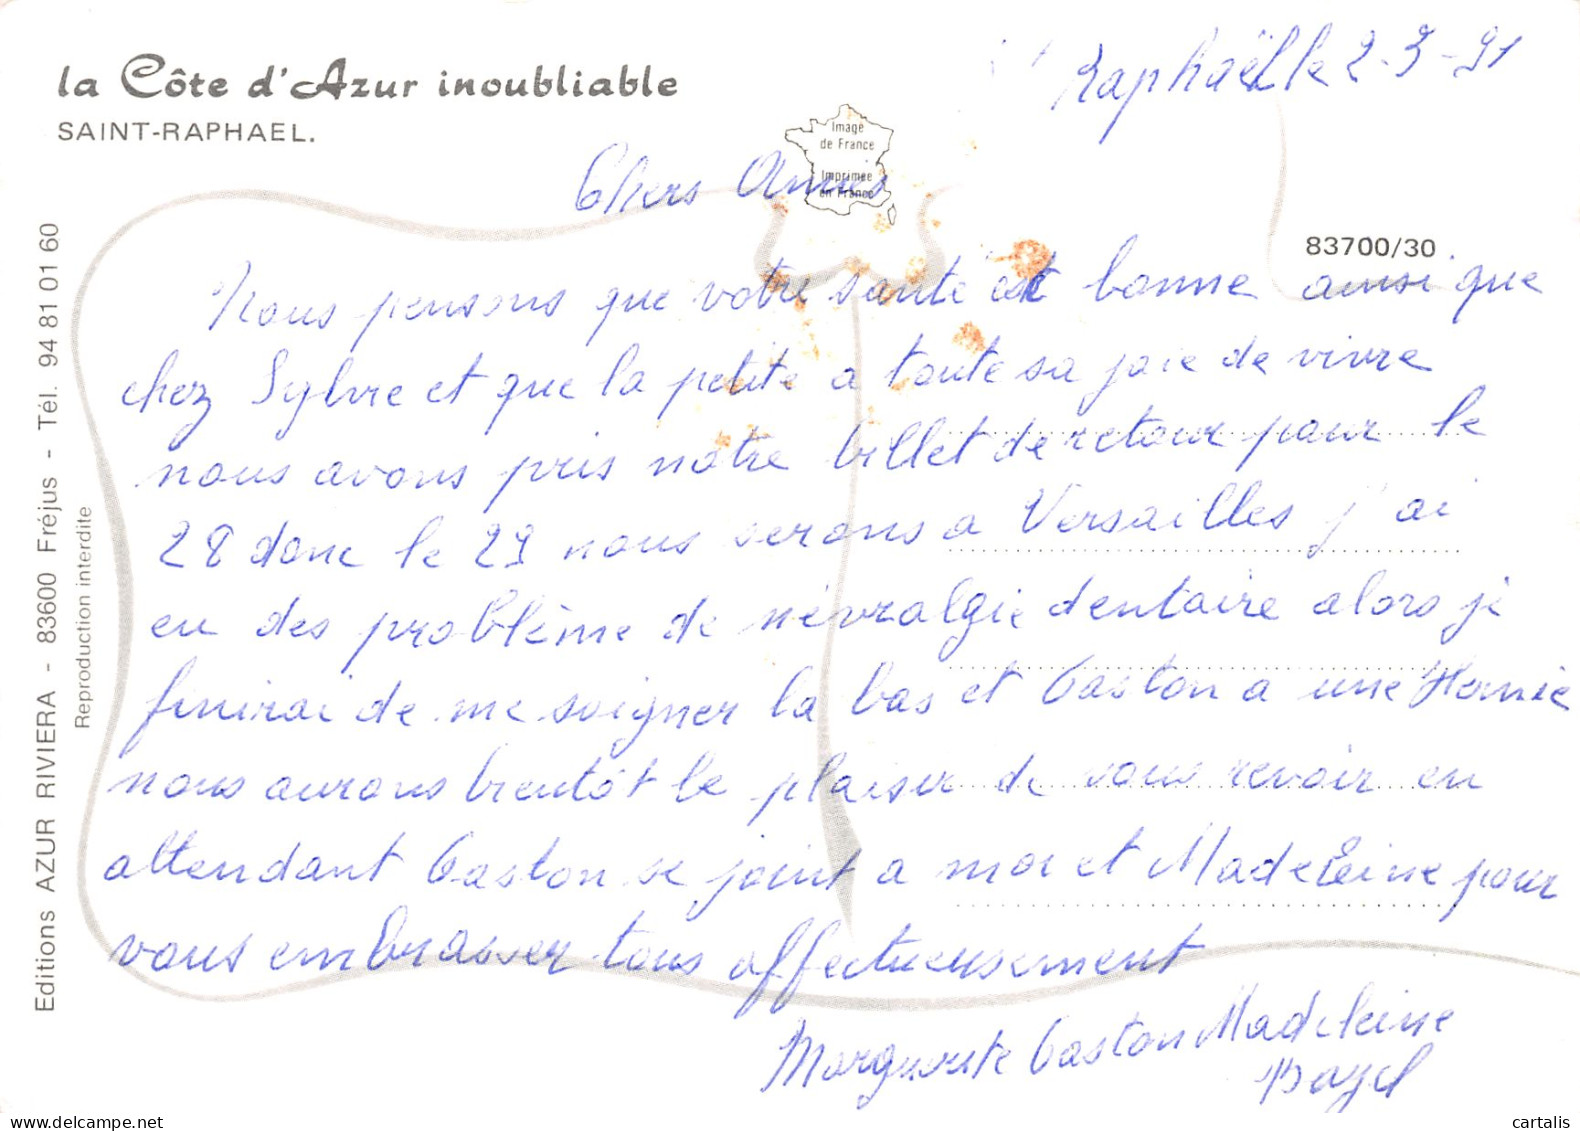 la Côte d'Azur inoubliable
SAINT-RAPHAEL.
Raphaël le 2-3-91
Image
de France
Imprimée
en France
Chers Amis
83700/30
Nous pensons que votre santé est bonne ainsi que
chez Sylvie et que la petite a toute sa joie de vivre
nous avons pris notre billet de retour pour le
28 donc le 29 nous serons a Versailles j'ai
eu des problème de névralgie dentaire alors je
finirai de me soigner la bas et Gaston a une Hernie
nous aurons bientôt le plaisir de vous revoir en
attendant Gaston se joint a moi et Madeleine pour
vous embrasser tous affectueusement
Marguerite Gaston Madeleine
Editions AZUR RIVIERA - 83600 Fréjus - Tél. 94 81 01 60
Reproduction interdite
cartalis